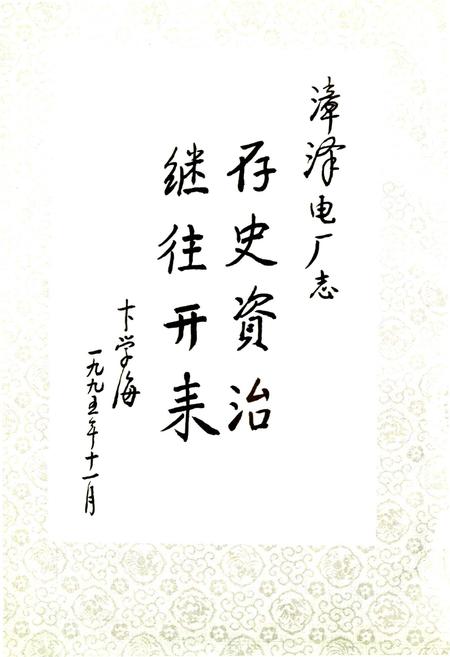 漳泽电厂志
存史資治
继往开来
卞学海
一九九五年十一月